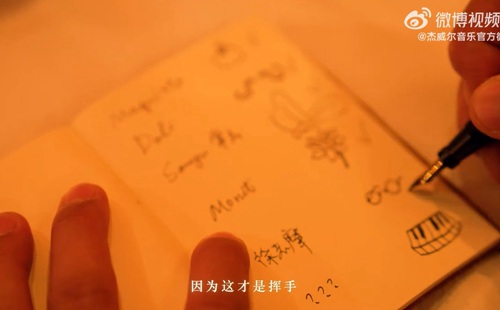 微博视频
@杰威尔音乐官方微
Magritte
Dali
Sanyu 常玉
Monet
徐志摩
???
因为这才是挥手